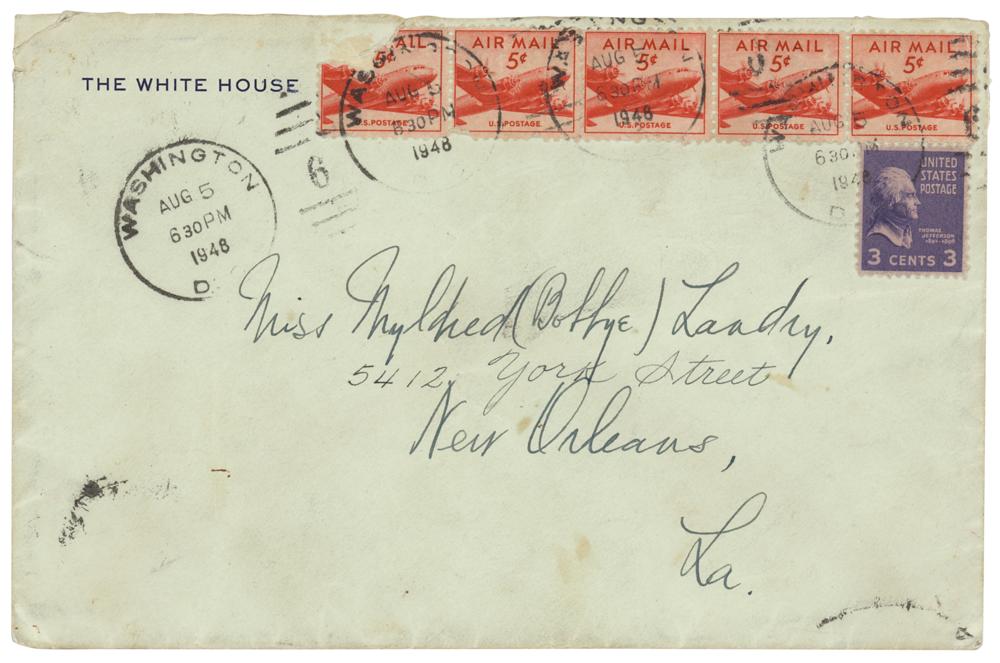 THE WHITE HOUSE
AIR MAIL AIR MAIL AIR MAIL AIR MAIL
5¢ 5¢ 5¢ 5¢ 5¢
U.S. POSTAGE U.S. POSTAGE U.S. POSTAGE U.S. POSTAGE U.S. POSTAGE
WASHINGTON
AUG 5
630 PM
1948
D.
6
AUG 5
630 PM
1948
AUG 5
630 PM
1948
630 PM
D
UNITED
STATES
POSTAGE
THOMAS
JEFFERSON
3 CENTS 3
Miss Myldred (Bobbye) Landry,
5412 York Street
New Orleans,
La.